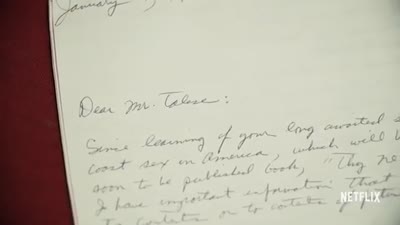 January
Dear Mr. Talese:
Since learning of your long awaited s
coast sex in America, which will b
soon to be published book, "Thy Ne
I have important information that
to contents or to contents of
NETFLIX